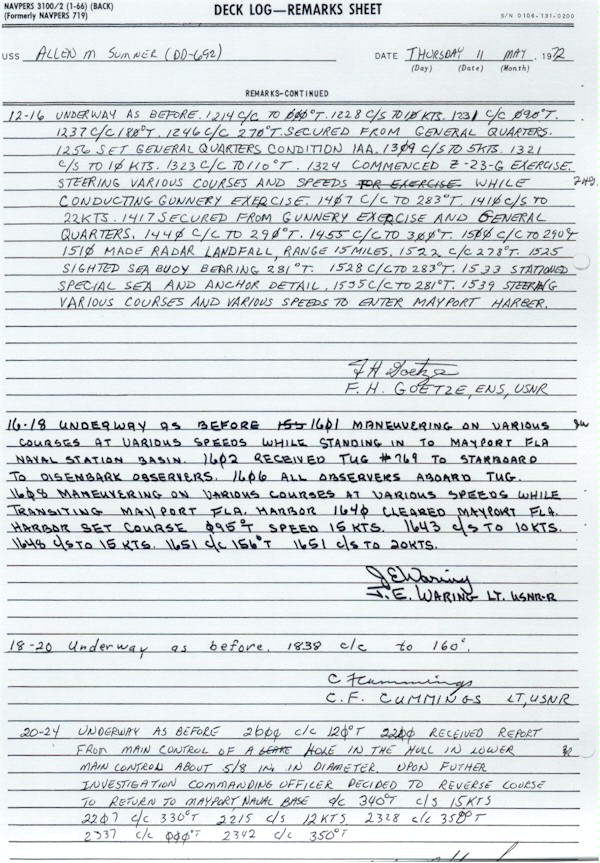 NAVPERS 3100/2 (1-66) (BACK)
(Formerly NAVPERS 719)
DECK LOG—REMARKS SHEET
S/N 0106-131-0200
USS ALLEN M SUMNER (DD-692) DATE THURSDAY 11 MAY, 1972
(Day) (Date) (Month)
REMARKS-CONTINUED
12-16 UNDERWAY AS BEFORE. 1214 C/C TO 000°T. 1228 C/S TO 10 KTS. 1231 C/C 090°T.
1237 C/C 180°T. 1246 C/C 270°T. SECURED FROM GENERAL QUARTERS.
1256 SET GENERAL QUARTERS CONDITION 1AA. 1309 C/S TO 5KTS. 1321
C/S TO 10 KTS. 1323 C/C TO 110°T. 1324 COMMENCED Z-23-G EXERCISE.
STEERING VARIOUS COURSES AND SPEEDS FOR EXERCISE WHILE
CONDUCTING GUNNERY EXERCISE. 1407 C/C TO 283°T. 1410 C/S TO
22KTS. 1417 SECURED FROM GUNNERY EXERCISE AND GENERAL
QUARTERS. 1440 C/C TO 290°T. 1455 C/C TO 300°T. 1500 C/C TO 290°T
1510 MADE RADAR LANDFALL, RANGE 15 MILES. 1522 C/C 278°T. 1525
SIGHTED SEA BUOY BEARING 281°T. 1528 C/C TO 283°T. 1533 STATIONED
SPECIAL SEA AND ANCHOR DETAIL. 1535 C/C TO 281°T. 1539 STEERING
VARIOUS COURSES AND VARIOUS SPEEDS TO ENTER MAYPORT HARBER.
F H Goetze
F. H. GOETZE, ENS, USNR
16-18 UNDERWAY AS BEFORE 155 1601 MANEUVERING ON VARIOUS
COURSES AT VARIOUS SPEEDS WHILE STANDING IN TO MAYPORT FLA
NAVAL STATION BASIN. 1602 RECEIVED TUG #769 TO STARBOARD
TO DISENBARK OBSERVERS. 1606 ALL OBSERVERS ABOARD TUG.
1608 MANEUVERING ON VARIOUS COURSES AT VARIOUS SPEEDS WHILE
TRANSITING MAYPORT FLA. HARBOR 1640 CLEARED MAYPORT FLA.
HARBOR SET COURSE 095°T SPEED 15 KTS. 1643 C/S TO 10KTS.
1648 C/S TO 15 KTS. 1651 C/C 156°T 1651 C/S TO 20KTS.
J E Waring
J. E. WARING LT. USNR-R
18-20 Underway as before. 1838 c/c to 160°.
C F Cummings
C. F. CUMMINGS LT, USNR
20-24 UNDERWAY AS BEFORE 2000 C/C 120°T 2200 RECEIVED REPORT
FROM MAIN CONTROL OF A HOLE IN THE HULL IN LOWER
MAIN CONTROL ABOUT 5/8 IN. IN DIAMETER. UPON FUTHER
INVESTIGATION COMMANDING OFFICER DECIDED TO REVERSE COURSE
TO RETURN TO MAYPORT, NAVAL BASE C/C 340°T C/S 15KTS
2207 C/C 330°T 2215 C/S 12KTS 2328 C/C 350°T
2337 C/C 000°T 2342 C/C 350°T